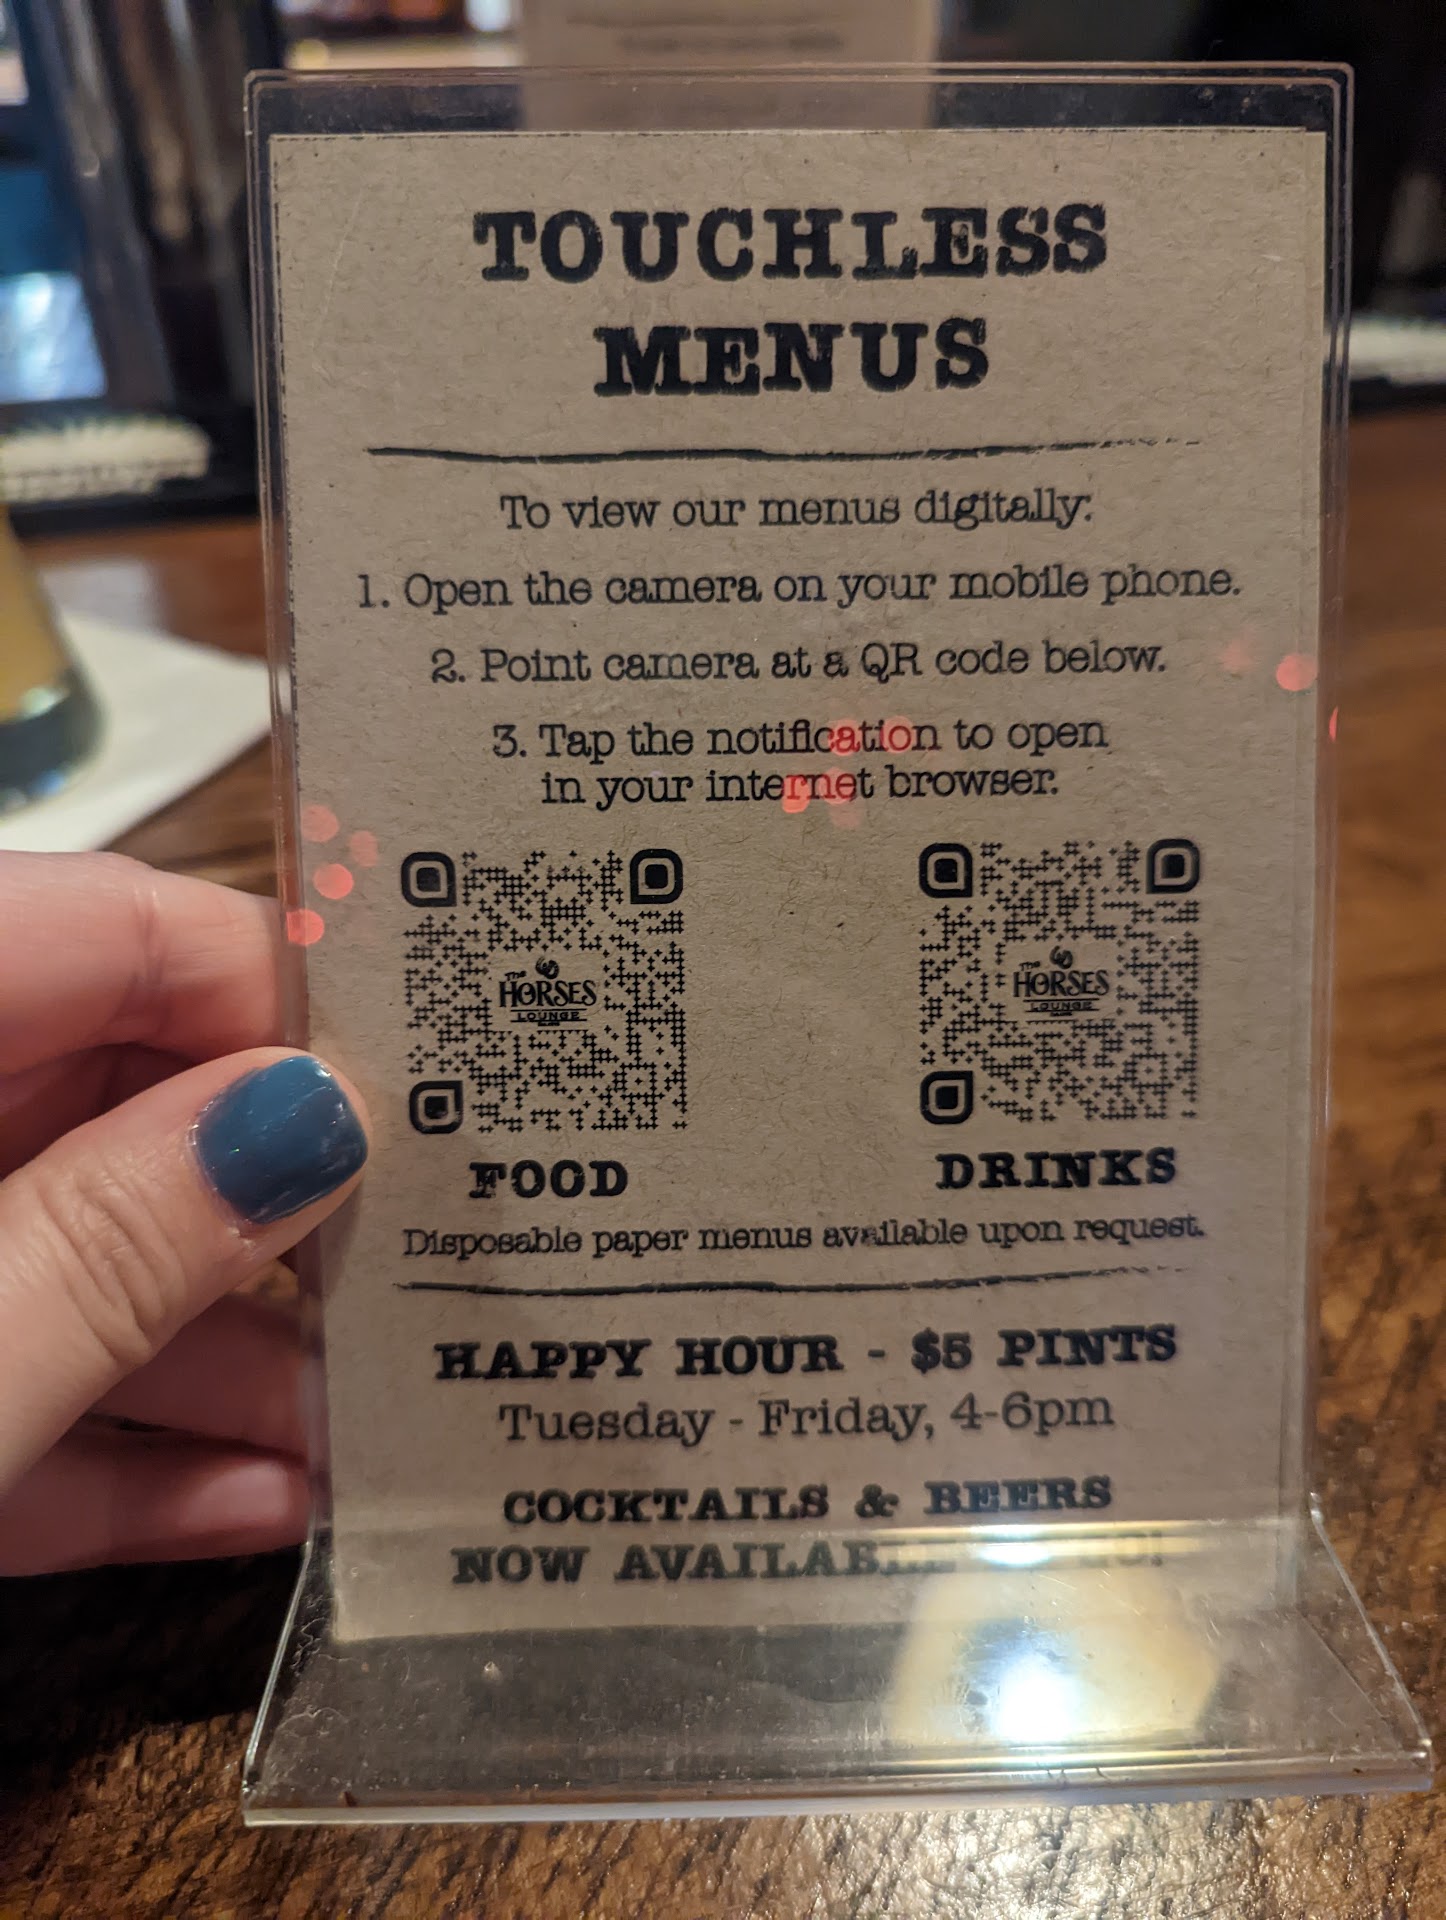 TOUCHLESS
MENUS
To view our menus digitally:
1. Open the camera on your mobile phone.
2. Point camera at a QR code below.
3. Tap the notification to open
in your internet browser.
The
HORSES
LOUNGE
The
HORSES
LOUNGE
FOOD
DRINKS
Disposable paper menus available upon request.
HAPPY HOUR - $5 PINTS
Tuesday - Friday, 4-6pm
COCKTAILS & BEERS
NOW AVAILABLE